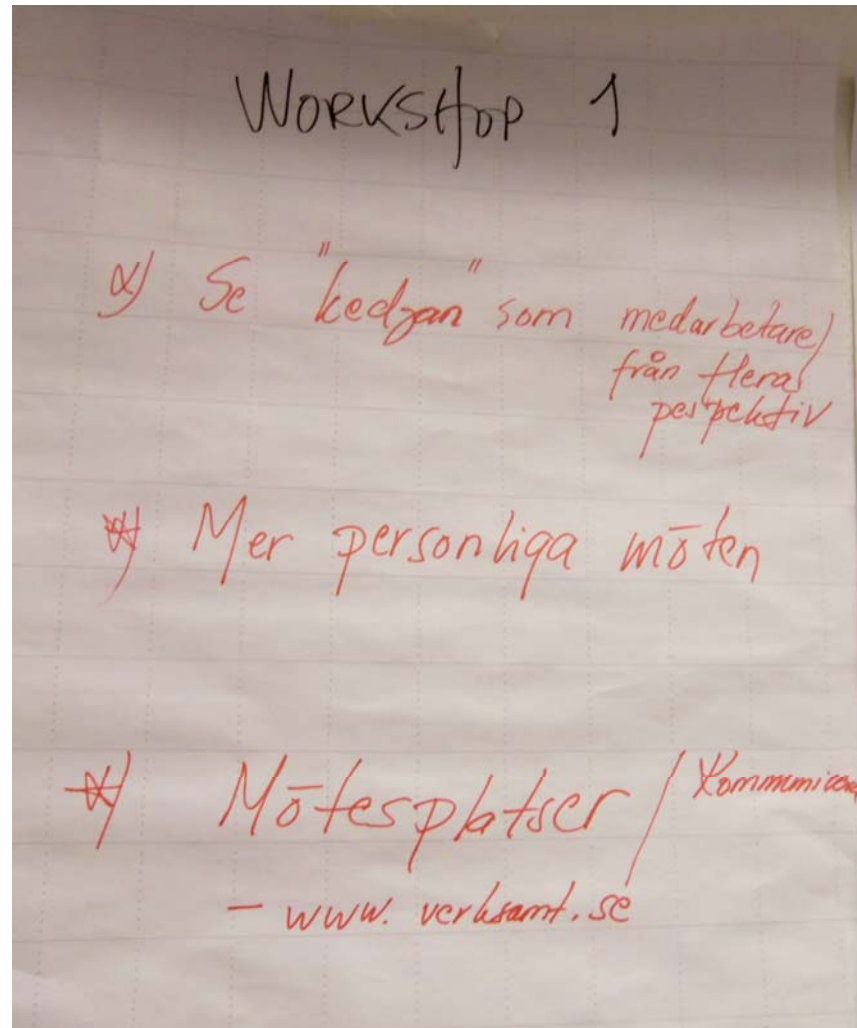 WORKSHOP 1
*) Se "kedjan" som medarbetare/
från flera
perspektiv
*) Mer personliga möten
*) Mötesplatser /
- www.verksamt.se